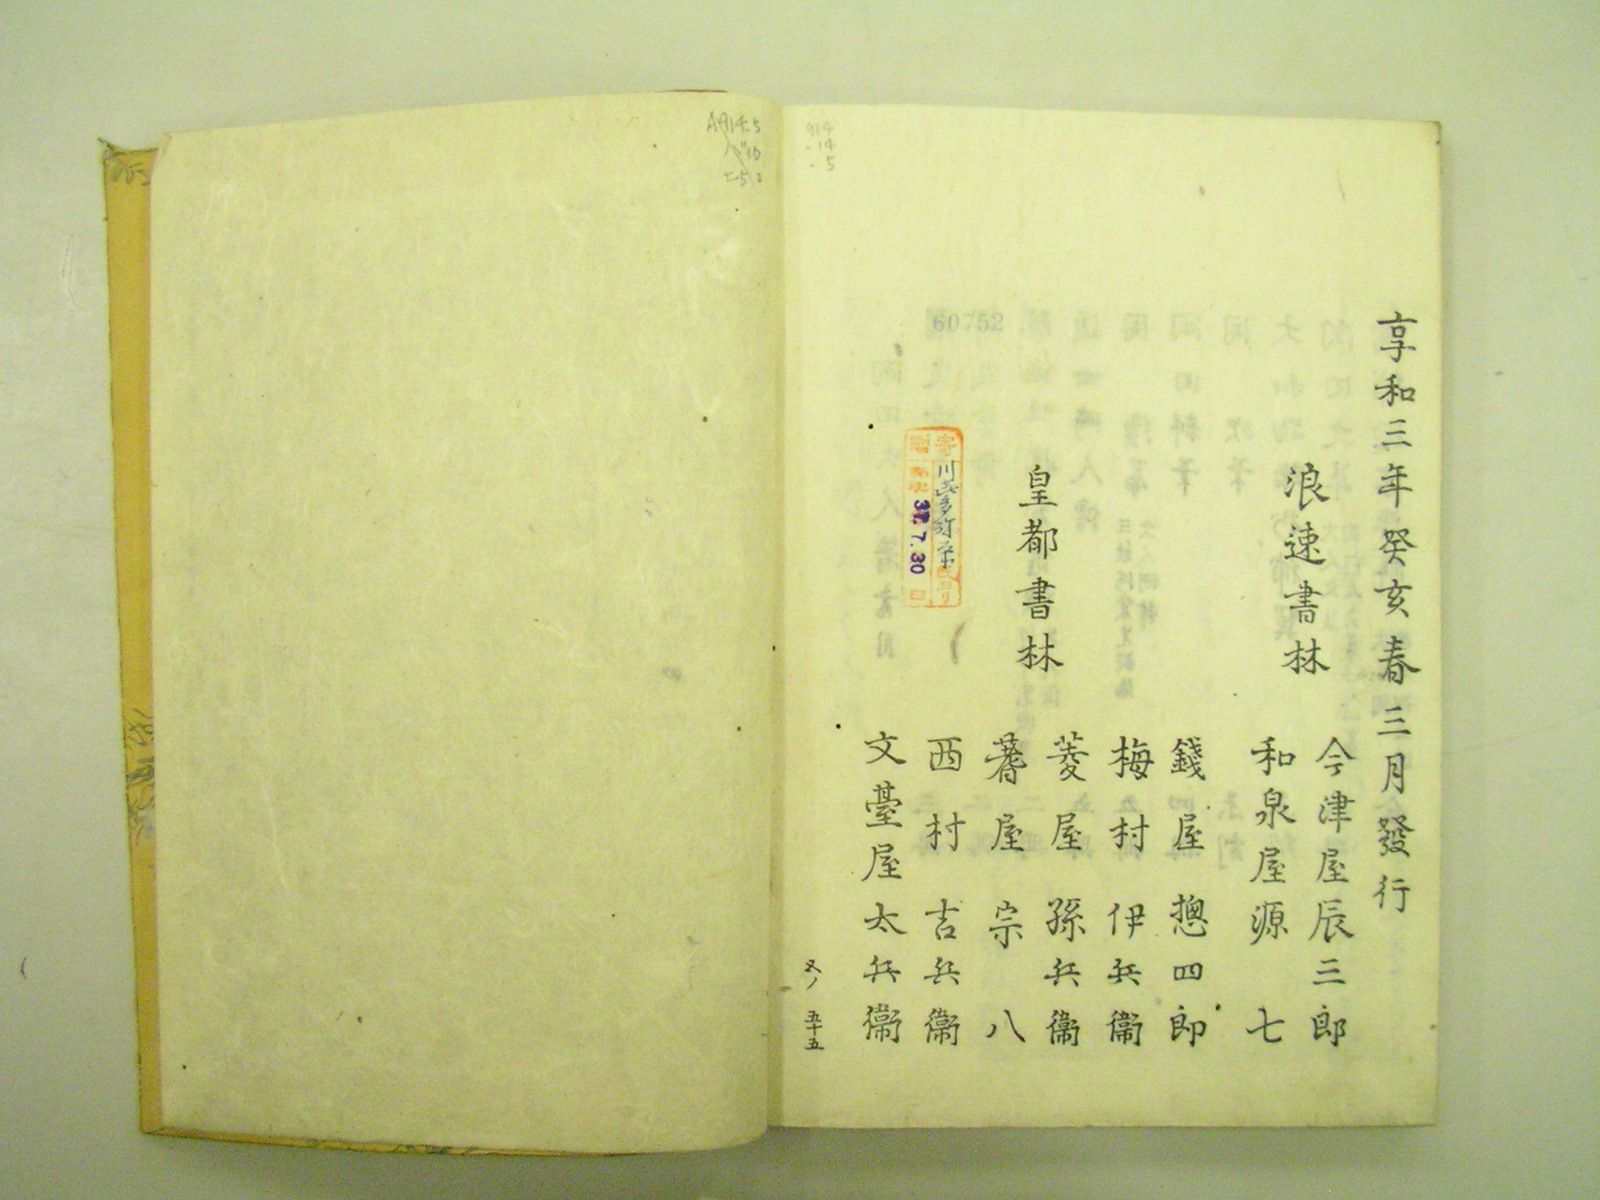 享和三年癸亥春三月發行
浪速書林
今津屋辰三郎
和泉屋源七
皇都書林
錢屋惣四郎
梅村伊兵衞
菱屋孫兵衞
蓍屋宗八
西村吉兵衞
文臺屋太兵衞
又ノ五十五
60752
寄贈
37.7.30
日
A914.5
914
-14
-5